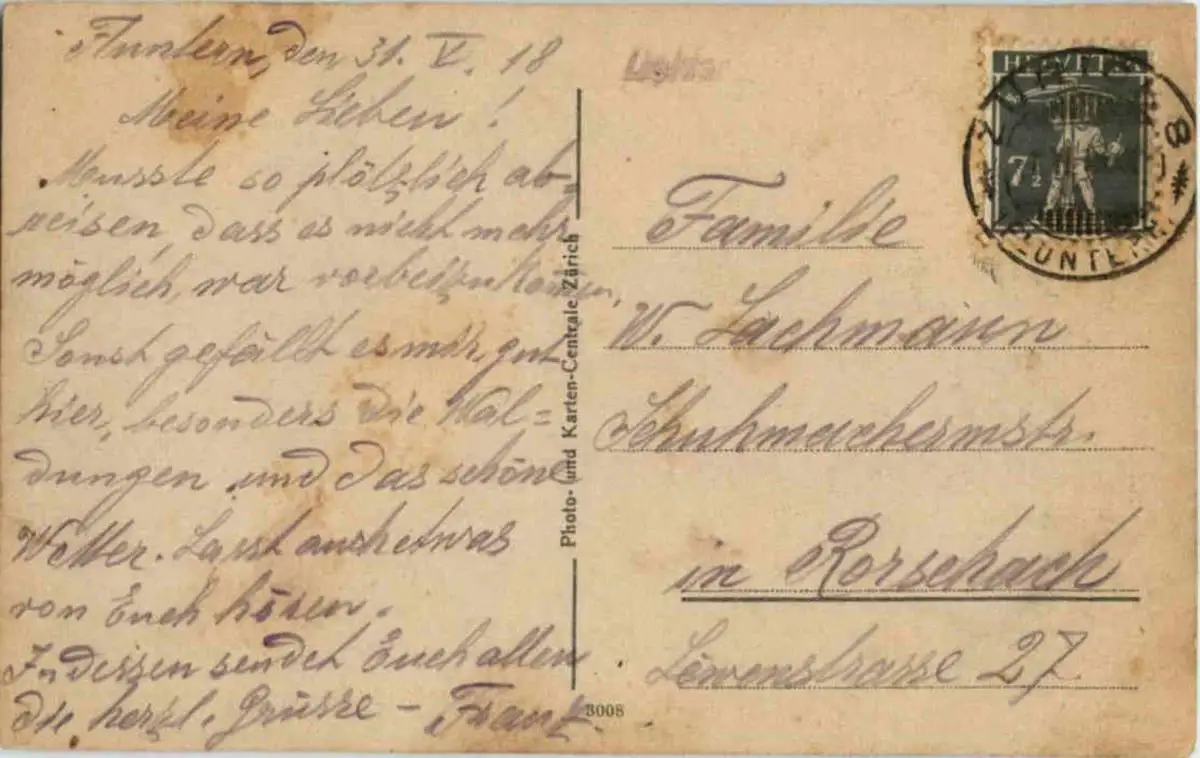 Fluntern, den 31. V. 18
Meine Lieben!
Musste so plötzlich ab-
reisen, dass es nicht mehr
möglich, war vorbeizukommen.
Sonst gefällt es mir, gut
hier, besonders die Wal=
dungen und das schöne
Wetter. Lasst auch etwas
von Euch hören.
Indessen sendet Euch allen
die herzl. Grüsse – Franz.
Photo- und Karten-Centrale Zürich
3008
HELVETIA
7½
ZÜRICH 8
FLUNTERN
Familie
W. Lachmann
Schuhmachermstr.
in Rorschach
Löwenstrasse 27.